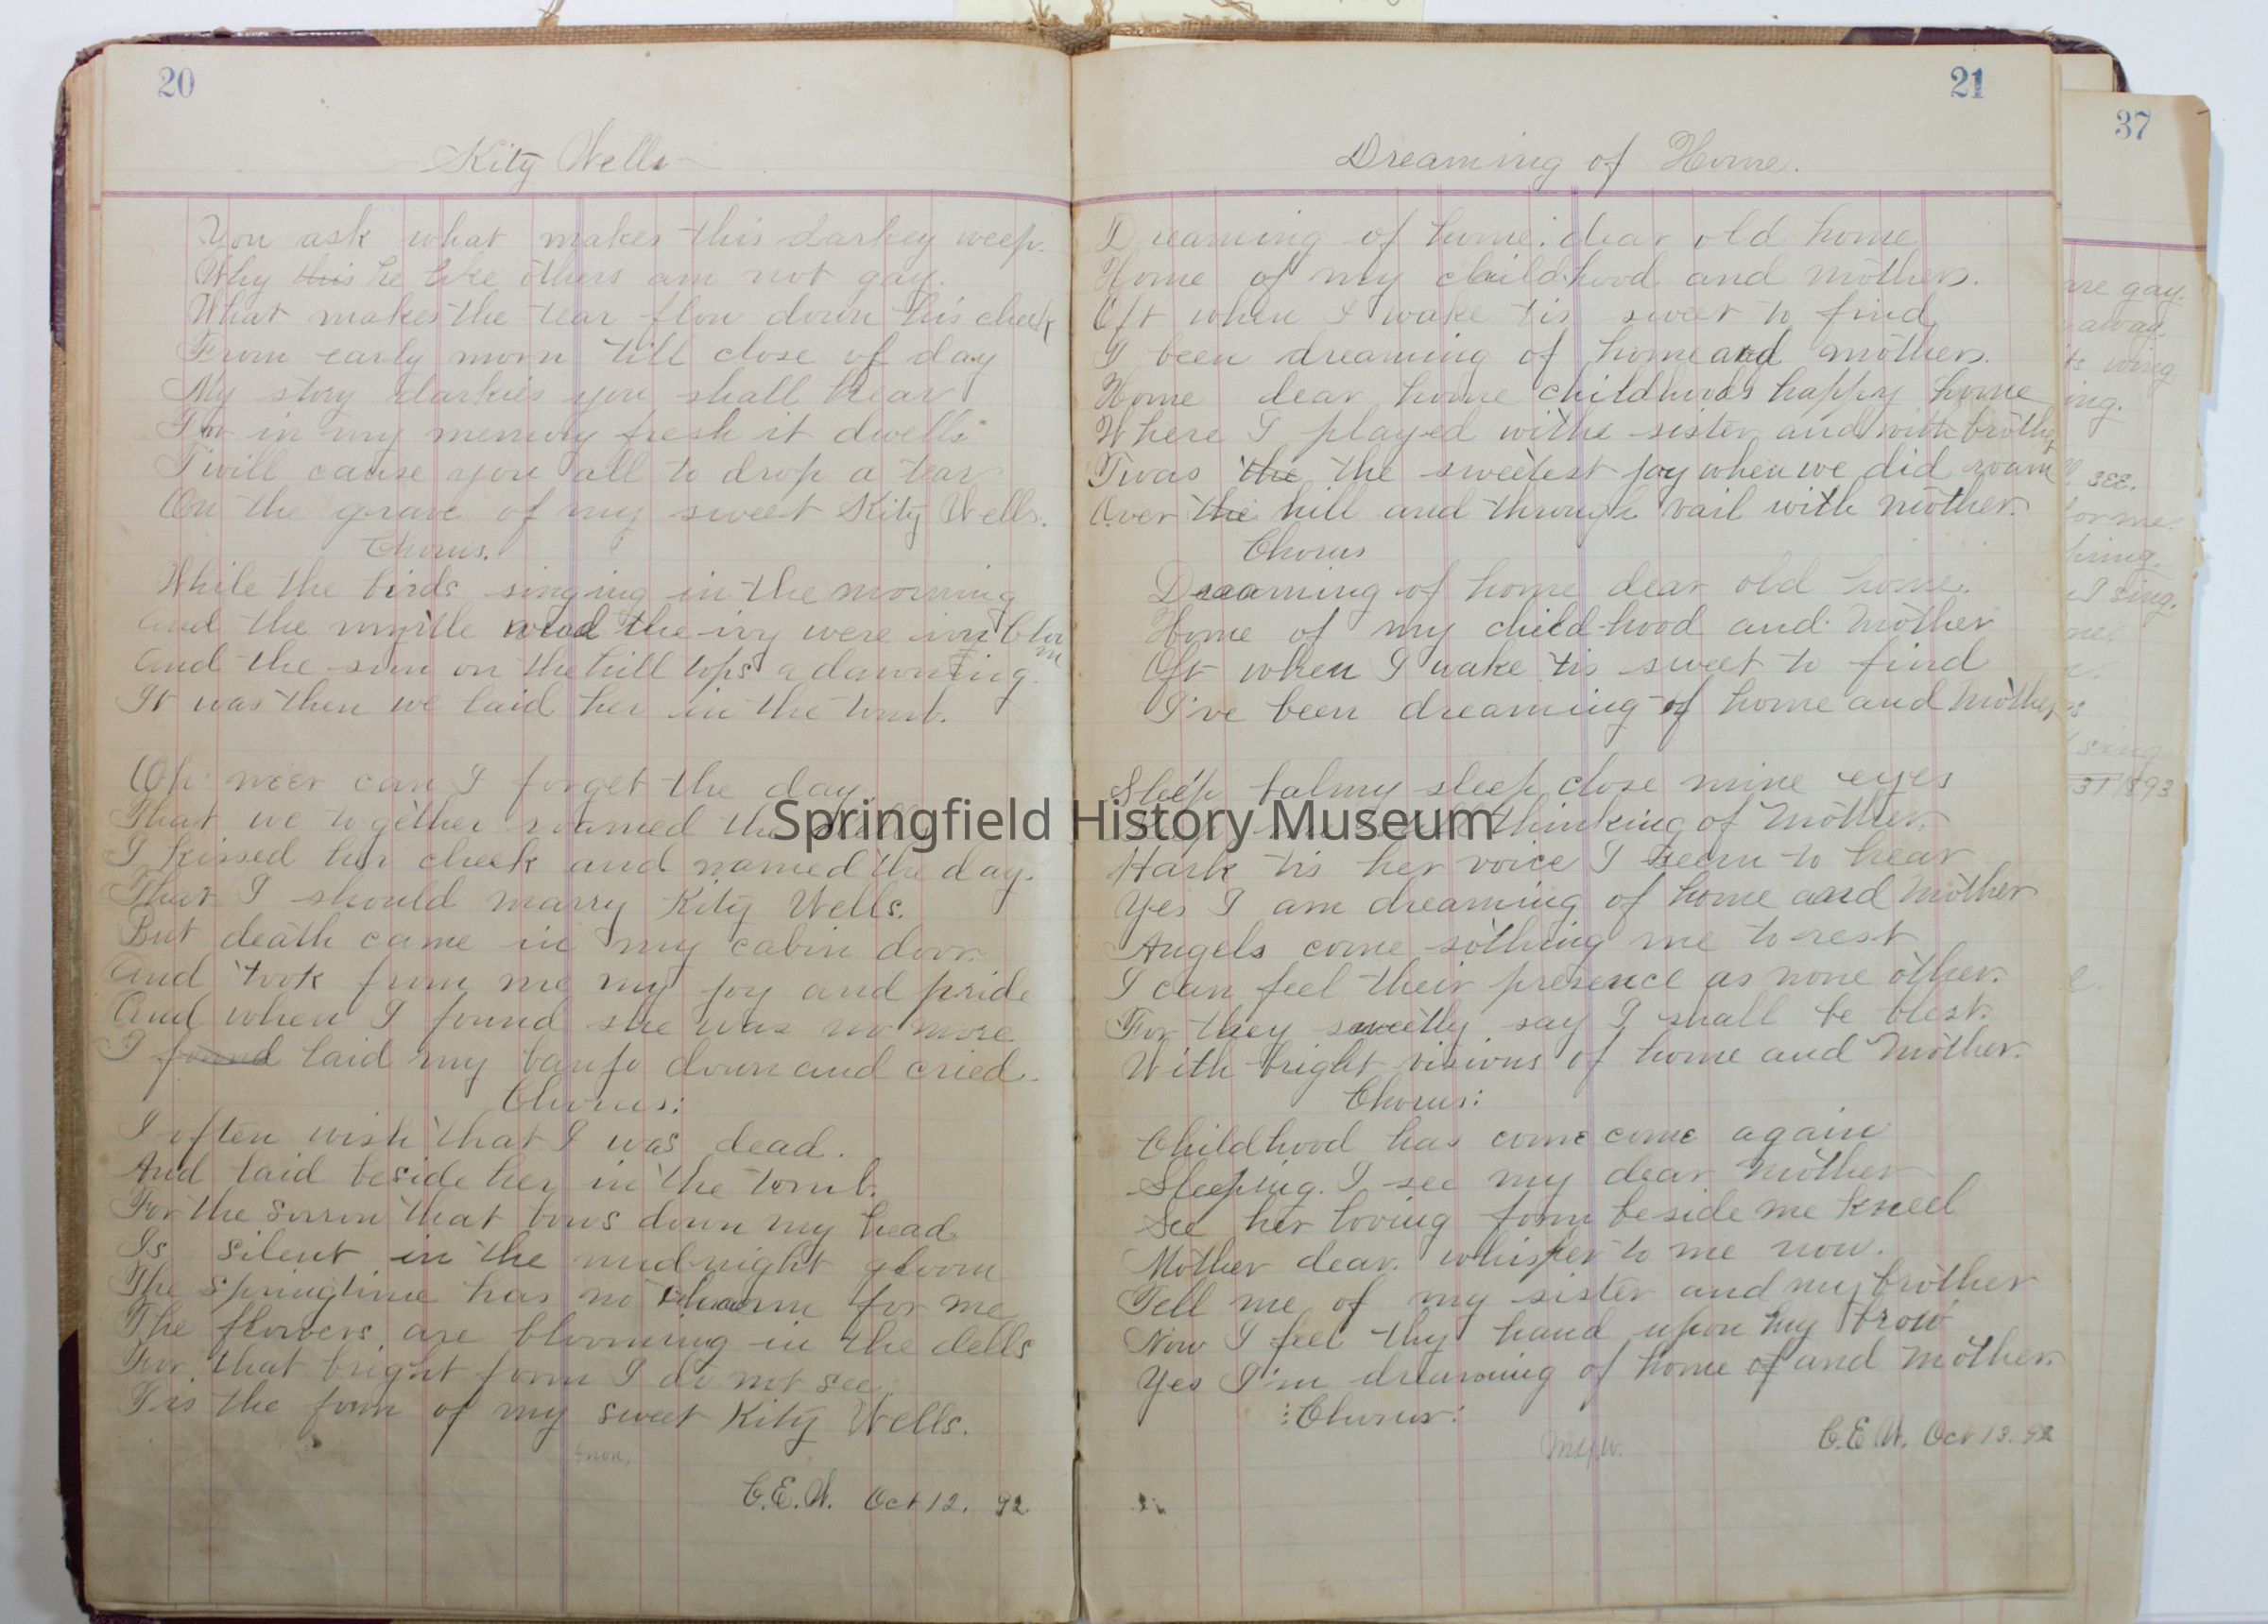 20
Kity Wells
You ask what makes this darkey weep.
Why this he like others am not gay.
What makes the tear flow down his cheek
From early morn till close of day
My story darkies you shall hear
For in my memory fresh it dwells
Twill cause you all to drop a tear
On the grave of my sweet Kity Wells.
Chorus.
While the birds singing in the morning
And the myrtle and the ivy were in bloom
And the sun on the hill tops a dawning.
It was then we laid her in the tomb.
Oh neer can I forget the day
That we together roamed the dells
I kissed her cheek and named the day.
That I should marry Kity Wells.
But death came in my cabin door.
And took from me my joy and pride
And when I found she was no more
I found laid my banjo down and cried.
Chorus:
I often wish that I was dead.
And laid beside her in the tomb.
For the sorrow that bows down my head
Is silent in the midnight gloom
The springtime has no charm for me
The flowers are blooming in the dells
For that bright form I do not see
Tis the form of my sweet Kity Wells.
Anon.
C.E.W. Oct 12. 92
21
Dreaming of Home.
Dreaming of home. dear old home
Home of my childhood and mothers.
Oft when I wake tis sweet to find
I been dreaming of home and mothers.
Home dear home childhoods happy home
Where I played withe sister and with brother
Twas the the sweetest joy when we did roam
Over the hill and through vail with mother.
Chorus
Dreaming of home dear old home.
Home of my child-hood and mother
Oft when I wake tis sweet to find
I've been dreaming of home and mothers
Sleep balmy sleep close mine eyes
thinking of Mother.
Hark tis her voice I seem to hear
Yes I am dreaming of home and Mother
Angels come sothing me to rest
I can feel their presence as none other.
For they sweetly say I shall be blest.
With bright visions of home and Mother.
Chorus:
Childhood has come come again
Sleeping. I see my dear Mother
See her loving form beside me kneel
Mother dear. whisper to me now.
Tell me of my sister and my brother
Now I feel thy hand upon my brow
Yes I'm dreaming of home of and Mother.
:Chorus:
C.E.W. Oct 13. 92
37
are gay.
away.
wing
ing.
see.
for me.
I sing.
sing
31 1893
Springfield History Museum